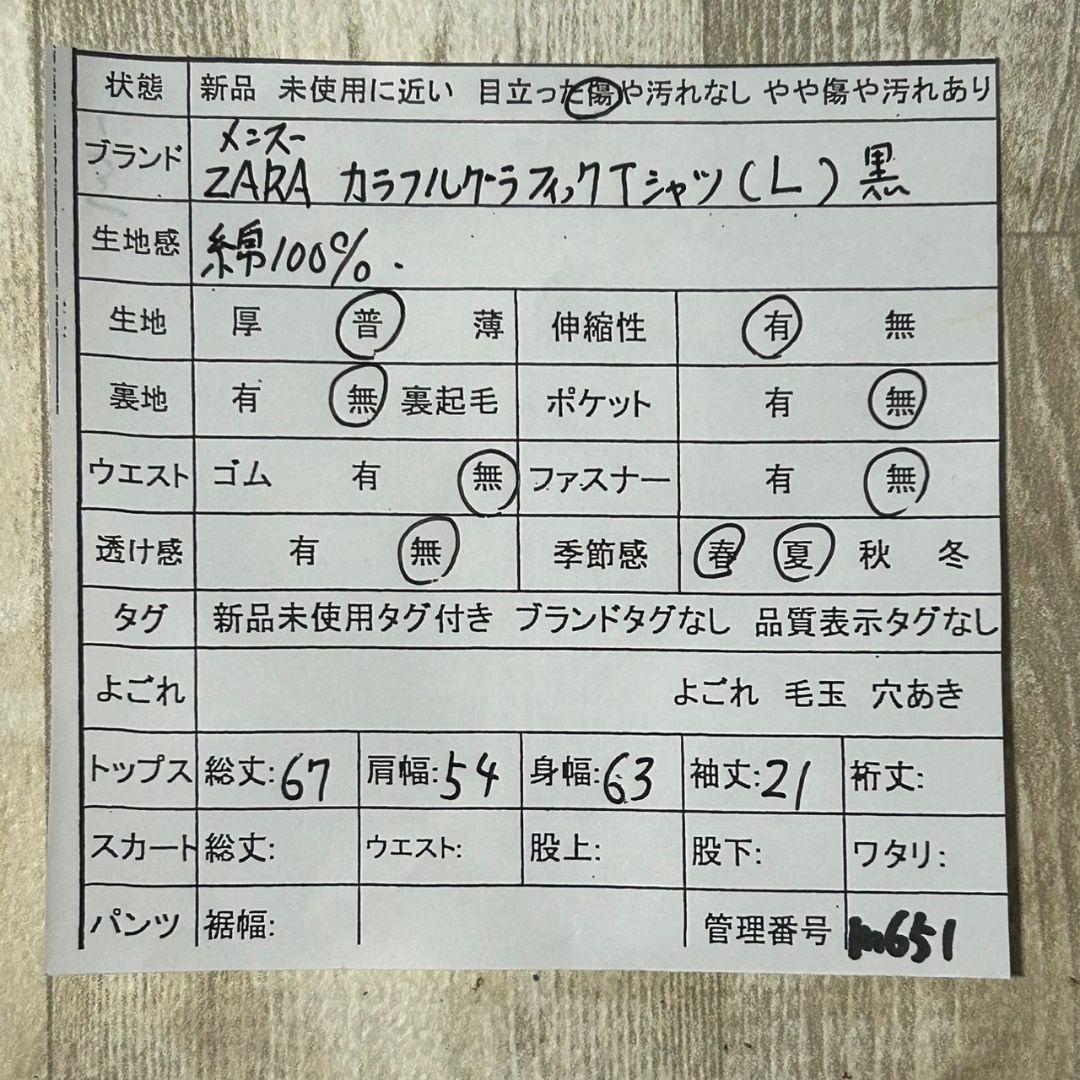 状態 新品 未使用に近い 目立った傷や汚れなし やや傷や汚れあり
メンズー
ブランド ZARA カラフルグラフィックTシャツ(L) 黒
生地感 綿100%.
生地 厚 普 薄 伸縮性 有 無
裏地 有 無 裏起毛 ポケット 有 無
ウエスト ゴム 有 無 ファスナー 有 無
透け感 有 無 季節感 春 夏 秋 冬
タグ 新品未使用タグ付き ブランドタグなし 品質表示タグなし
よごれ よごれ 毛玉 穴あき
トップス 総丈:67 肩幅:54 身幅:63 袖丈:21 裄丈:
スカート 総丈: ウエスト: 股上: 股下: ワタリ:
パンツ 裾幅: 管理番号 m651